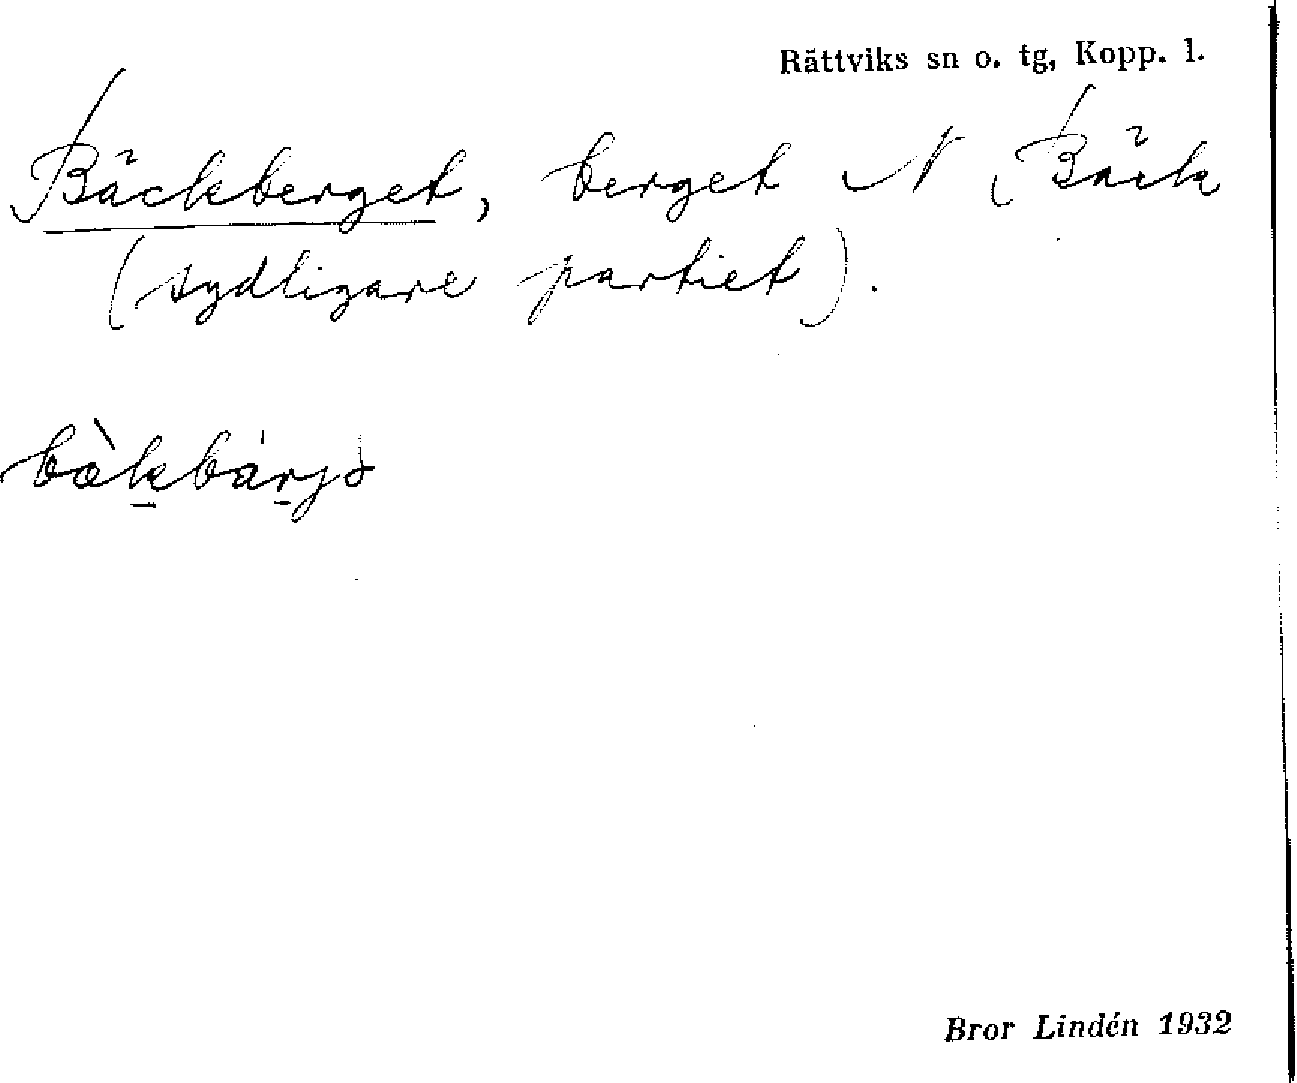 Rättviks sn o. tg, Kopp. l.
Bäckberget, berget N Bäck
(sydligare partiet).
bæ̀k̠bär̠jə
Bror Lindén 1932